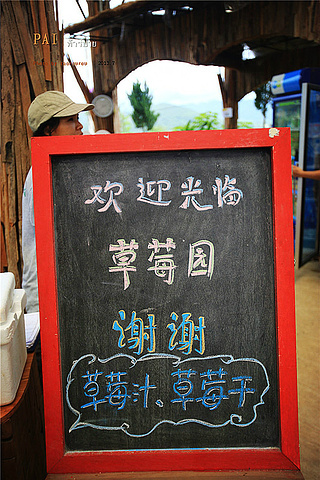 PAI
欢迎光临
草莓园
谢谢
草莓汁、草莓干